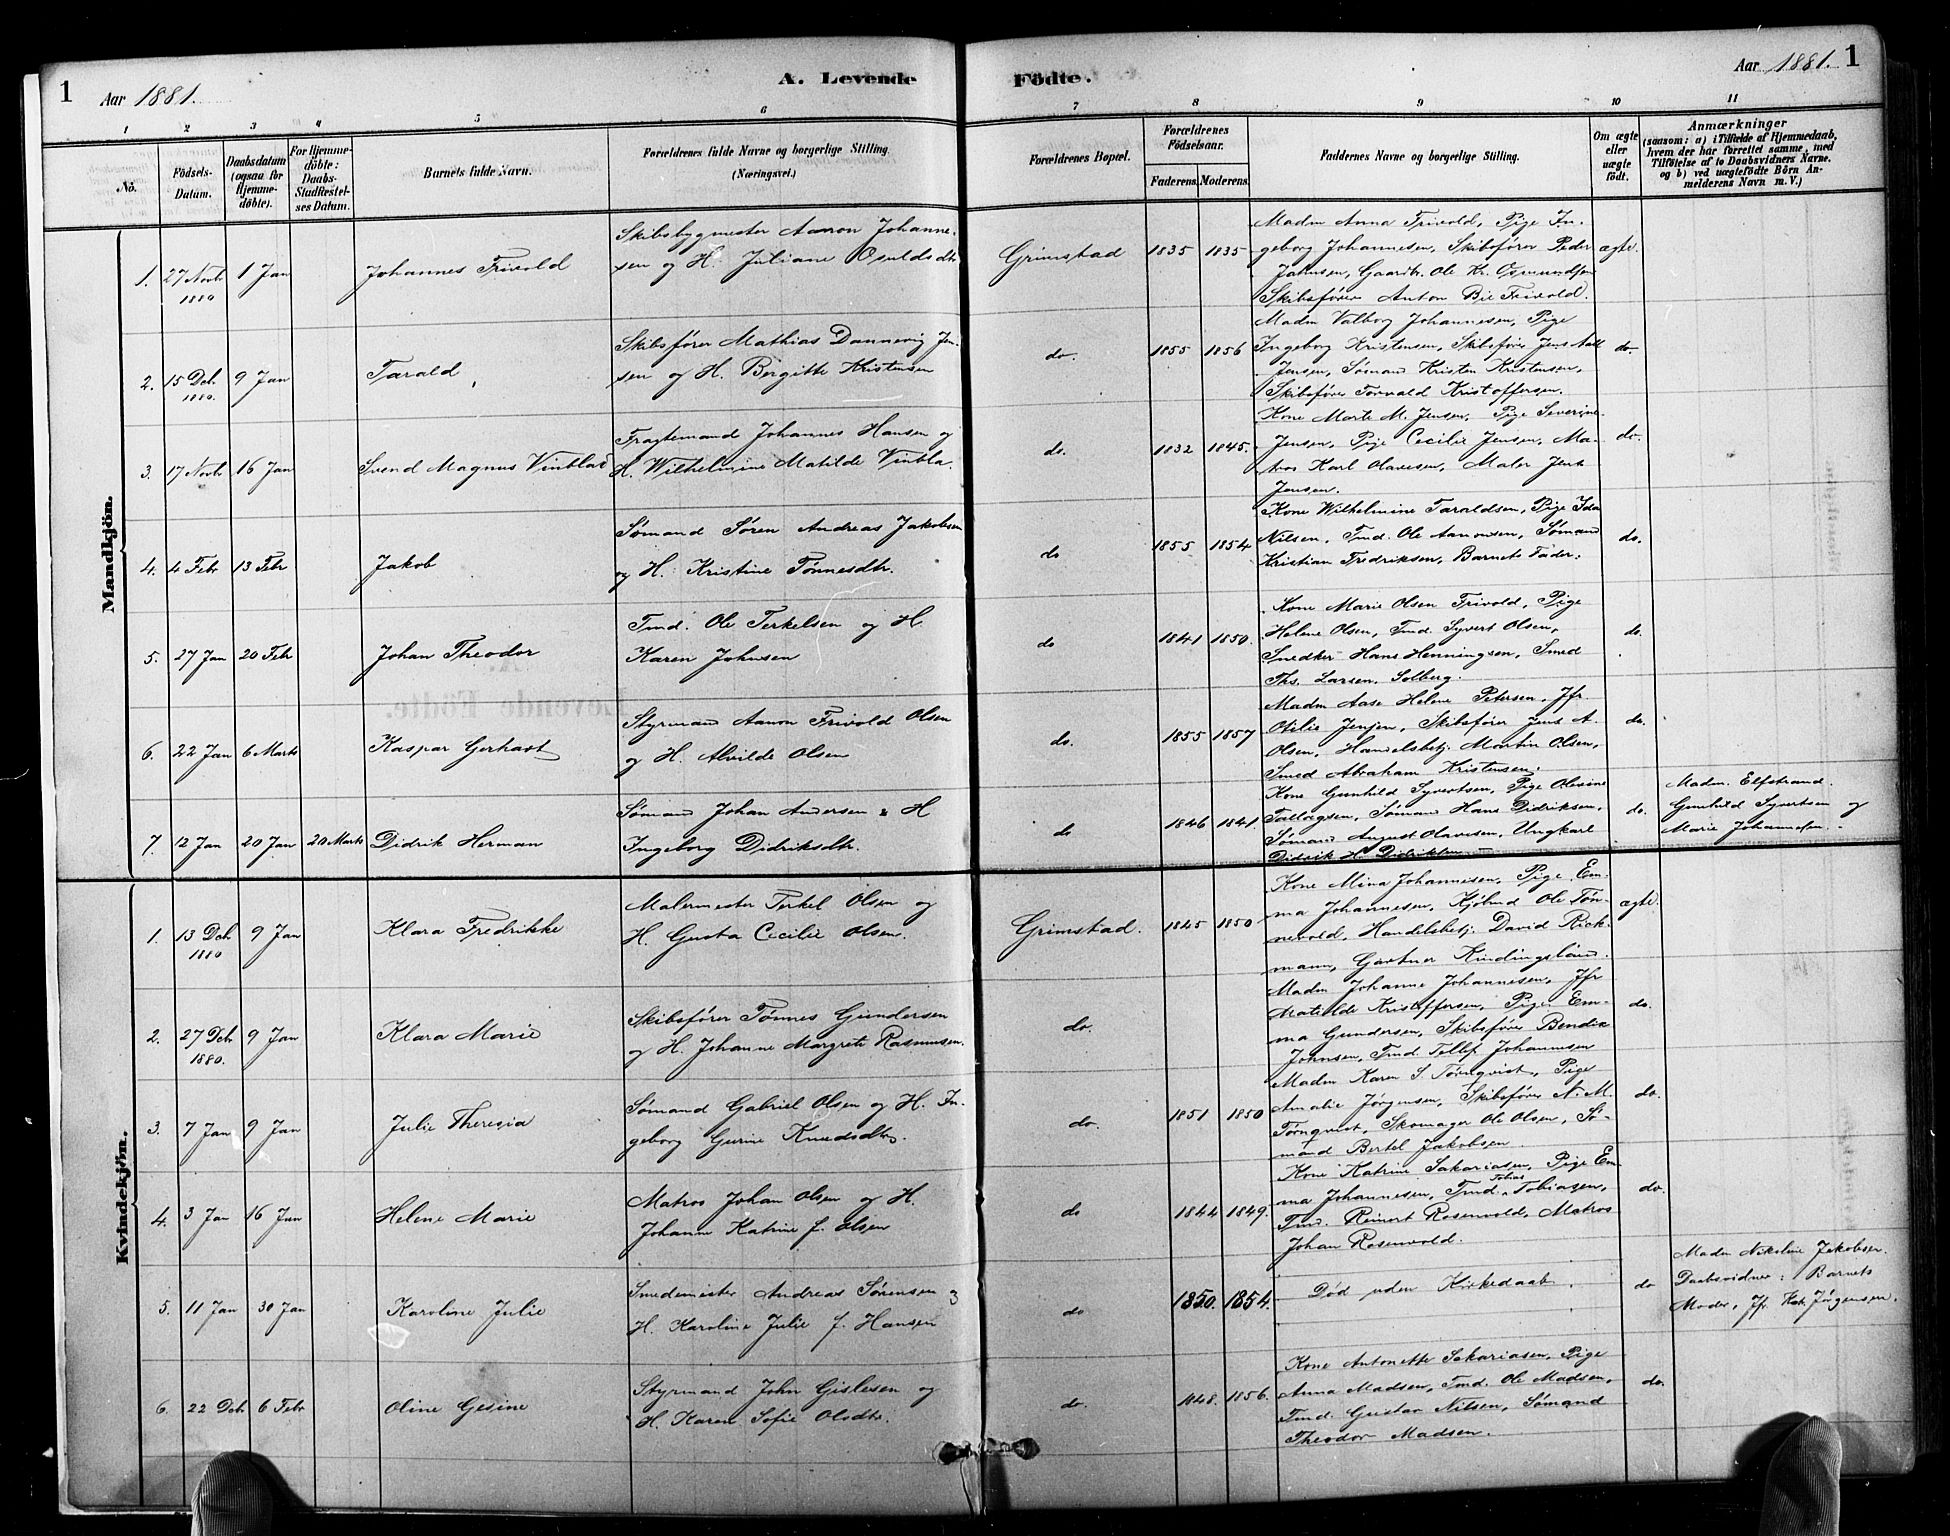 1
Aar 1881.
A. Levende
Födte.
Aar 1881.
1
1 2 3 4 5 6 7 8 9 10 11
No.
Födsels-
Datum.
Daabsdatum
(ogsaa for
Hjemme-
döbte).
For Hjemme-
döbte:
Daabs-
Stadfæstel-
ses Datum.
Barnets fulde Navn.
Forældrenes fulde Navne og borgerlige Stilling.
(Næringsvei.)
Forældrenes Bopæl.
Forældrenes
Födselsaar.
Faderens. Moderens.
Faddernes Navne og borgerlige Stilling.
Om ægte
eller
uægte
födt.
Anmærkninger
(saasom: a) i Tilfælde af Hjemmedaab,
hvem der har forrettet samme, med
Tilföielse af to Daabsvidners Navne.
og b) ved uægtefödte Börn An-
melderens Navn m. V.)
Mandkjön.
1. 27 Novb 1880 1 Jan
Johannes Frivold
Skibsbygmester Aaron Johanne-
sen og H. Juliane Osuldsdtr
Grimstad 1835 1835
Madm Anna Frivold, Pige In-
geborg Johannesen, Skibsfører Peder
Jahnsen, Gaardbr. Ole Kr. Osmundsen
Skibsfører Anton Bie Frivold.
ægte.
2. 15 Dcb. 1880. 9 Jan
Tarald
Skibsfører Mathias Dannevig Jen-
sen og H. Bergitte Kristensen
do. 1855 1856
Madm Valborg Johannesen, Pige
Ingeborg Kristensen, Skibsfører Jens Aall
Jensen, Sømand Kristen Kristensen,
Skibsfører Torvald Kristoffersen.
do.
3. 17 Novb 16 Jan
Svend Magnus Vinblad
Fragtemand Johannes Hansen og
H. Wilhelmine Matilde Vinbla.
do. 1832 1845.
Kone Marte M. Jensen, Pige Severine
Jensen, Pige Cecilie Jensen, Ma-
tros Karl Olavesen, Maler Jens
Jensen.
do.
4. 4 Febr 13 Febr
Jakob
Sømand Søren Andreas Jakobsen
og H. Kristine Tønnesdtr.
do 1855 1854
Kone Wilhelmine Taraldsen, Pige Ida
Nilsen, Tmd. Ole Aamodsen, Sømand
Kristian Fredriksen, Barnets Fader.
do.
5. 27 Jan 20 Febr
Johan Theodor
Tmd. Ole Terkelsen og H
Karen Johnsen
do 1841 1850.
Kone Marie Olsen Frivold, Pige
Helene Olsen, Tmd. Syvert Olsen,
Snedker Hans Henningsen, Smed
Ths. Larsen, Solberg.
do.
6. 22 Jan 6 Marts
Kaspar Gerhart
Styrmand Aanon Frivold Olsen
og H. Alvilde Olsen
do. 1855 1857
Madm Aase Helene Petersen, Jfr.
Otilie Jensen, Skibsfører Jens A.
Olsen, Handelsbetj. Martin Olsen,
Smed Abraham Kristensen.
do.
7. 12 Jan 20 Jan 20 Marts
Didrik Herman
Sømand Johan Andersen & H
Ingeborg Didriksdtr.
do 1846 1841.
Kone Gunhild Syvertsen, Pige Olevine
Tallagsen, Sømand Hans Didriksen,
Sømand August Olavesen, Ungkarl
Didrik H. Didriksen
do.
Madm. Elfstrand
Gunhild Syvertsen og
Marie Johannesen.
Kvindekjön.
1. 13 Dcb 1880 9 Jan
Klara Fredrikke
Malermester Terkel Olsen og
H. Gusta Cecilie Olsen.
Grimstad. 1845 1850
Kone Mina Johannesen, Pige Em-
ma Johannesen, Kjøbmd Ole Tøn-
nevold, Handelsbetj. David Rick-
mann, Gartner
ægte.
2. 27 Dcb 1880. 9 Jan
Klara Marie
Skibsfører Tønnes Gundersen
og H. Johanne Margrete Rasmussen.
do.
Madm Johanne Johannesen, Jfr
Matilde Kristoffersen, Pige Em-
ma Gundersen, Skibsfører Bendix
Johnsen, Tmd. Tellef Johannesen
do.
3. 7 Jan 9 Jan
Julie Theresia
Sømand Gabriel Olsen og H. In-
geborg Gurine Knudsdtr.
do. 1851 1850
Madm Karen S. Tørnqvist, Pige
Amalie Jørgensen, Skibsfører N. M.
Tørnqvist, Skomager Ole Olsen, Sø-
mand Bertel Jakobsen
do.
4. 3 Jan 16 Jan
Helene Marie
Matros Johan Olsen og H.
Johanne Katrine f. Olsen
do 1844 1849.
Kone Katrine Sakariasen, Pige Em-
ma Johannesen, Tmd. Tobias Tobiasen,
Tmd. Reinert Rosenvold, Matros
Johan Rosenvold.
do.
5. 11 Jan 30 Jan
Karoline Julie
Smedemester Andreas Sørensen og
H. Karoline Julie f. Hansen
do 1850. 1854.
Død uden Kirkedaab.
do
Madm Nikoline Jakobsen.
Daabsvidner: Barnets
Moder, Jfr. Kat. Jørgensen.
6. 22 Dcb 6 Febr
Oline Gesine
Styrmand John Gislesen og
H. Karen Sofie Olsdtr.
do. 1848. 1856.
Kone Antonette Sakariasen, Pige
Anna Madsen, Tmd. Ole Madsen,
Tmd. Gustav Nilsen, Sømand
Theodor Madsen.
do.